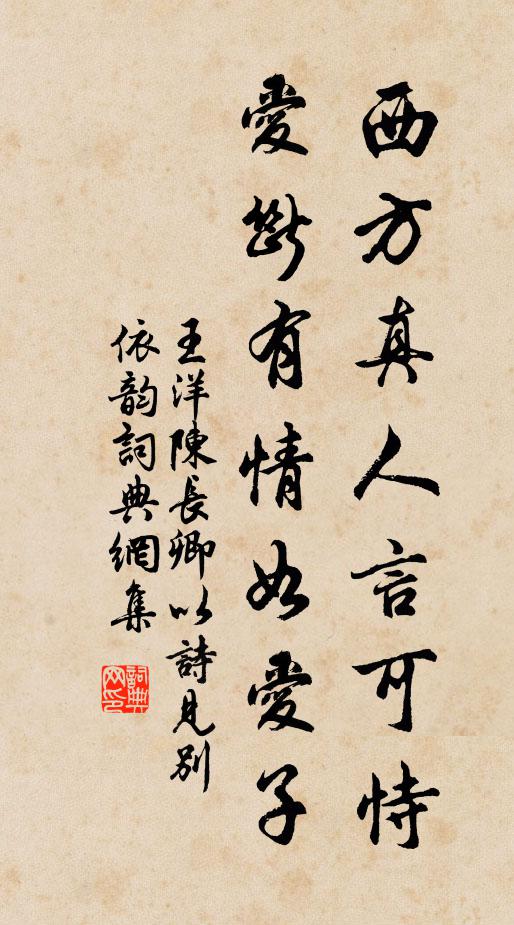 西方真人言可恃
愛斷有情如愛子
王洋陳長卿以詩見別
依韵詞典網集
詞典網印